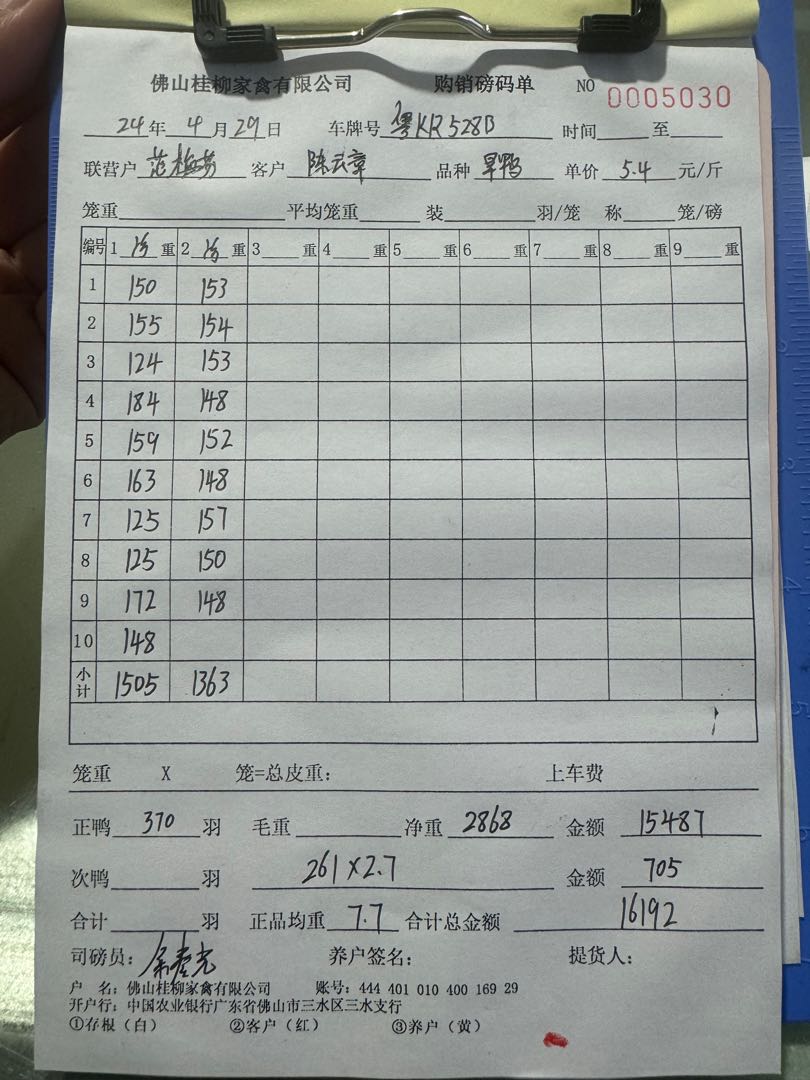 佛山桂柳家禽有限公司 购销磅码单 NO 0005030
24年4月29日 车牌号 粤KR528D 时间 至
联营户 范梅芬 客户 陈云章 品种 旱鸭 单价 5.4 元/斤
笼重 平均笼重 装 羽/笼 称 笼/磅
编号 1 净重 2 净重 3 重 4 重 5 重 6 重 7 重 8 重 9 重
1 150 153
2 155 154
3 124 153
4 184 148
5 159 152
6 163 148
7 125 157
8 125 150
9 172 148
10 148
小计 1505 1363
笼重 X 笼=总皮重: 上车费
正鸭 370 羽 毛重 净重 2868 金额 15487
次鸭 羽 261×2.7 金额 705
合计 羽 正品均重 7.7 合计总金额 16192
司磅员: 养户签名: 提货人:
户 名: 佛山桂柳家禽有限公司 账号: 444 401 010 400 169 29
开户行: 中国农业银行广东省佛山市三水区三水支行
①存根(白) ②客户(红) ③养户(黄)